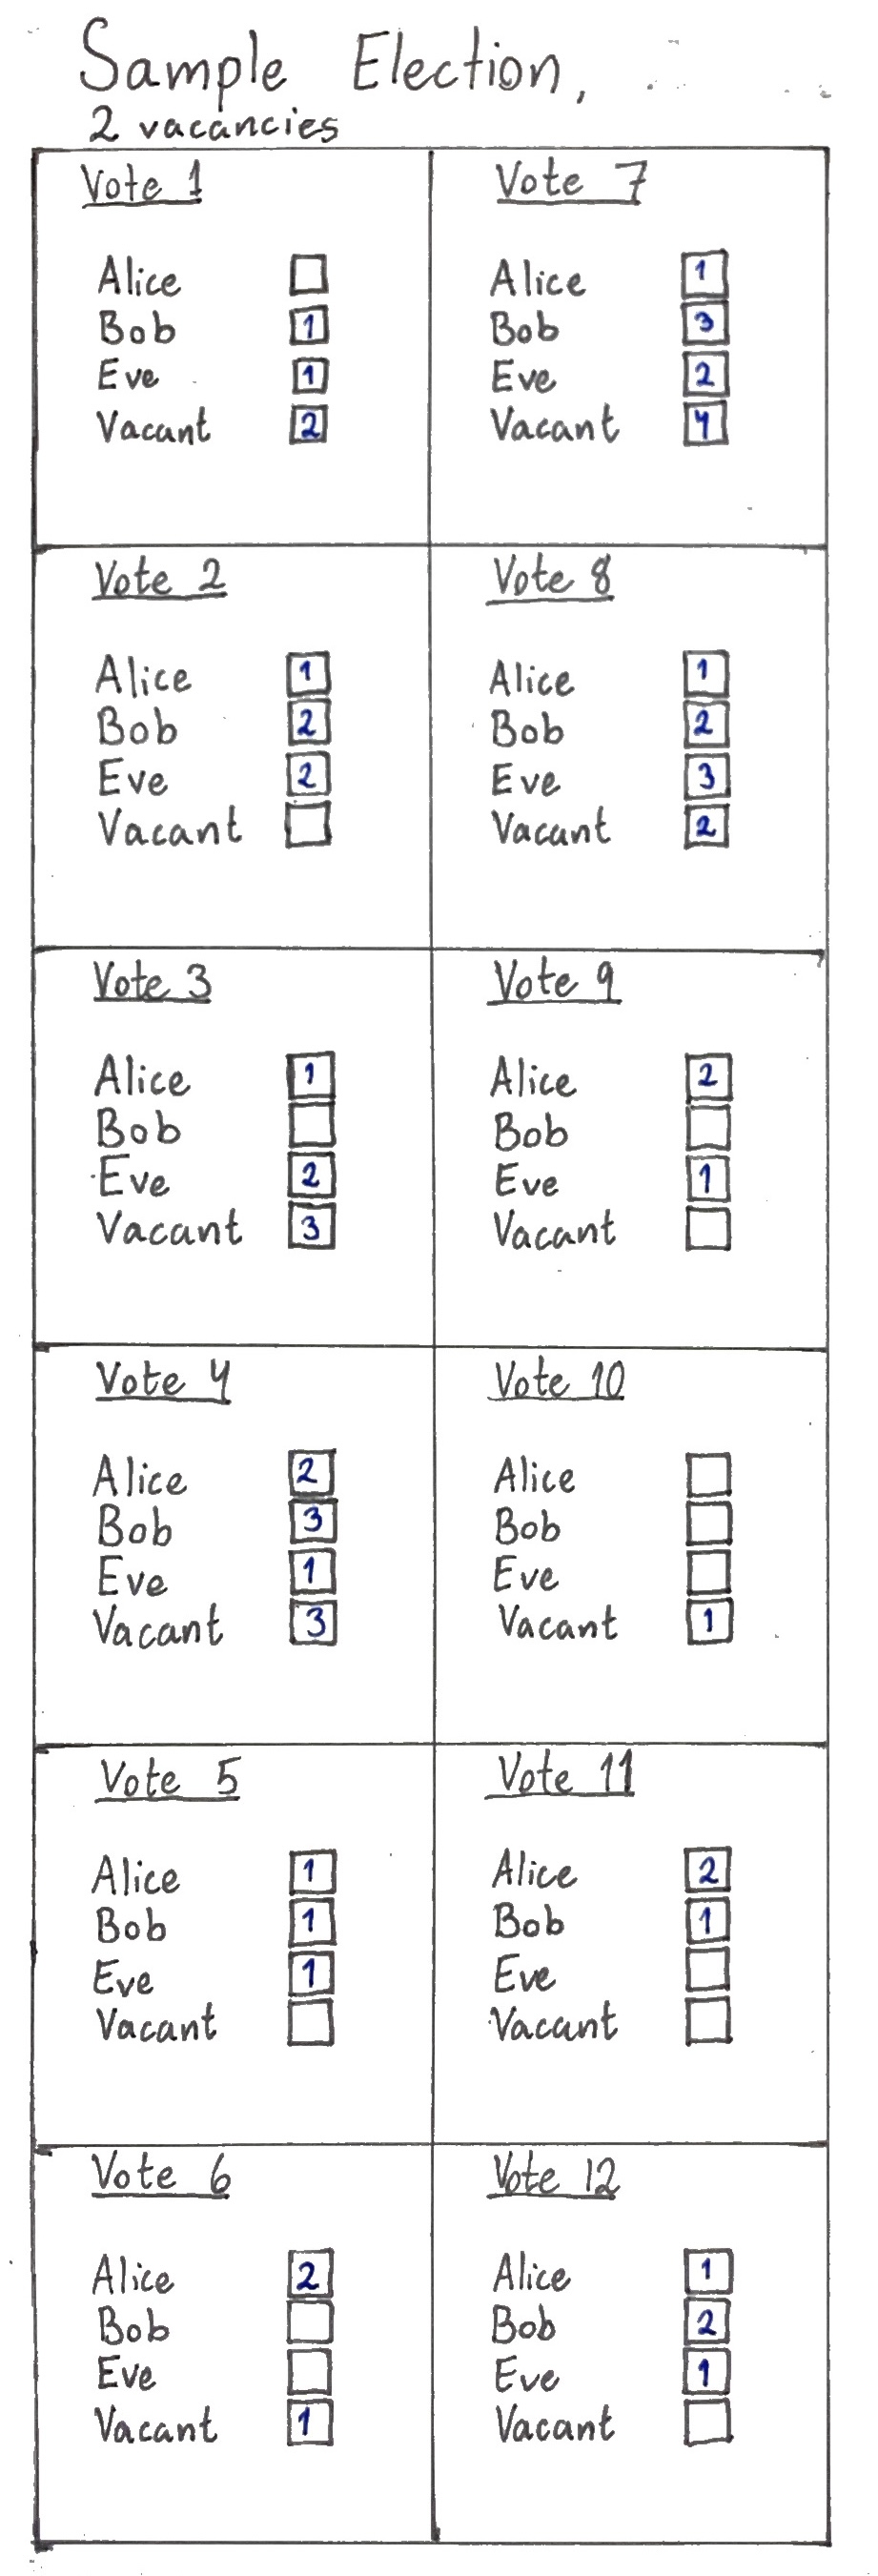 Sample Election,
2 vacancies
Vote 1
Alice
Bob 1
Eve 1
Vacant 2
Vote 2
Alice 1
Bob 2
Eve 2
Vacant
Vote 3
Alice 1
Bob
Eve 2
Vacant 3
Vote 4
Alice 2
Bob 3
Eve 1
Vacant 3
Vote 5
Alice 1
Bob 1
Eve 1
Vacant
Vote 6
Alice 2
Bob
Eve
Vacant 1
Vote 7
Alice 1
Bob 3
Eve 2
Vacant 4
Vote 8
Alice 1
Bob 2
Eve 3
Vacant 2
Vote 9
Alice 2
Bob
Eve 1
Vacant
Vote 10
Alice
Bob
Eve
Vacant 1
Vote 11
Alice 2
Bob 1
Eve
Vacant
Vote 12
Alice 1
Bob 2
Eve 1
Vacant